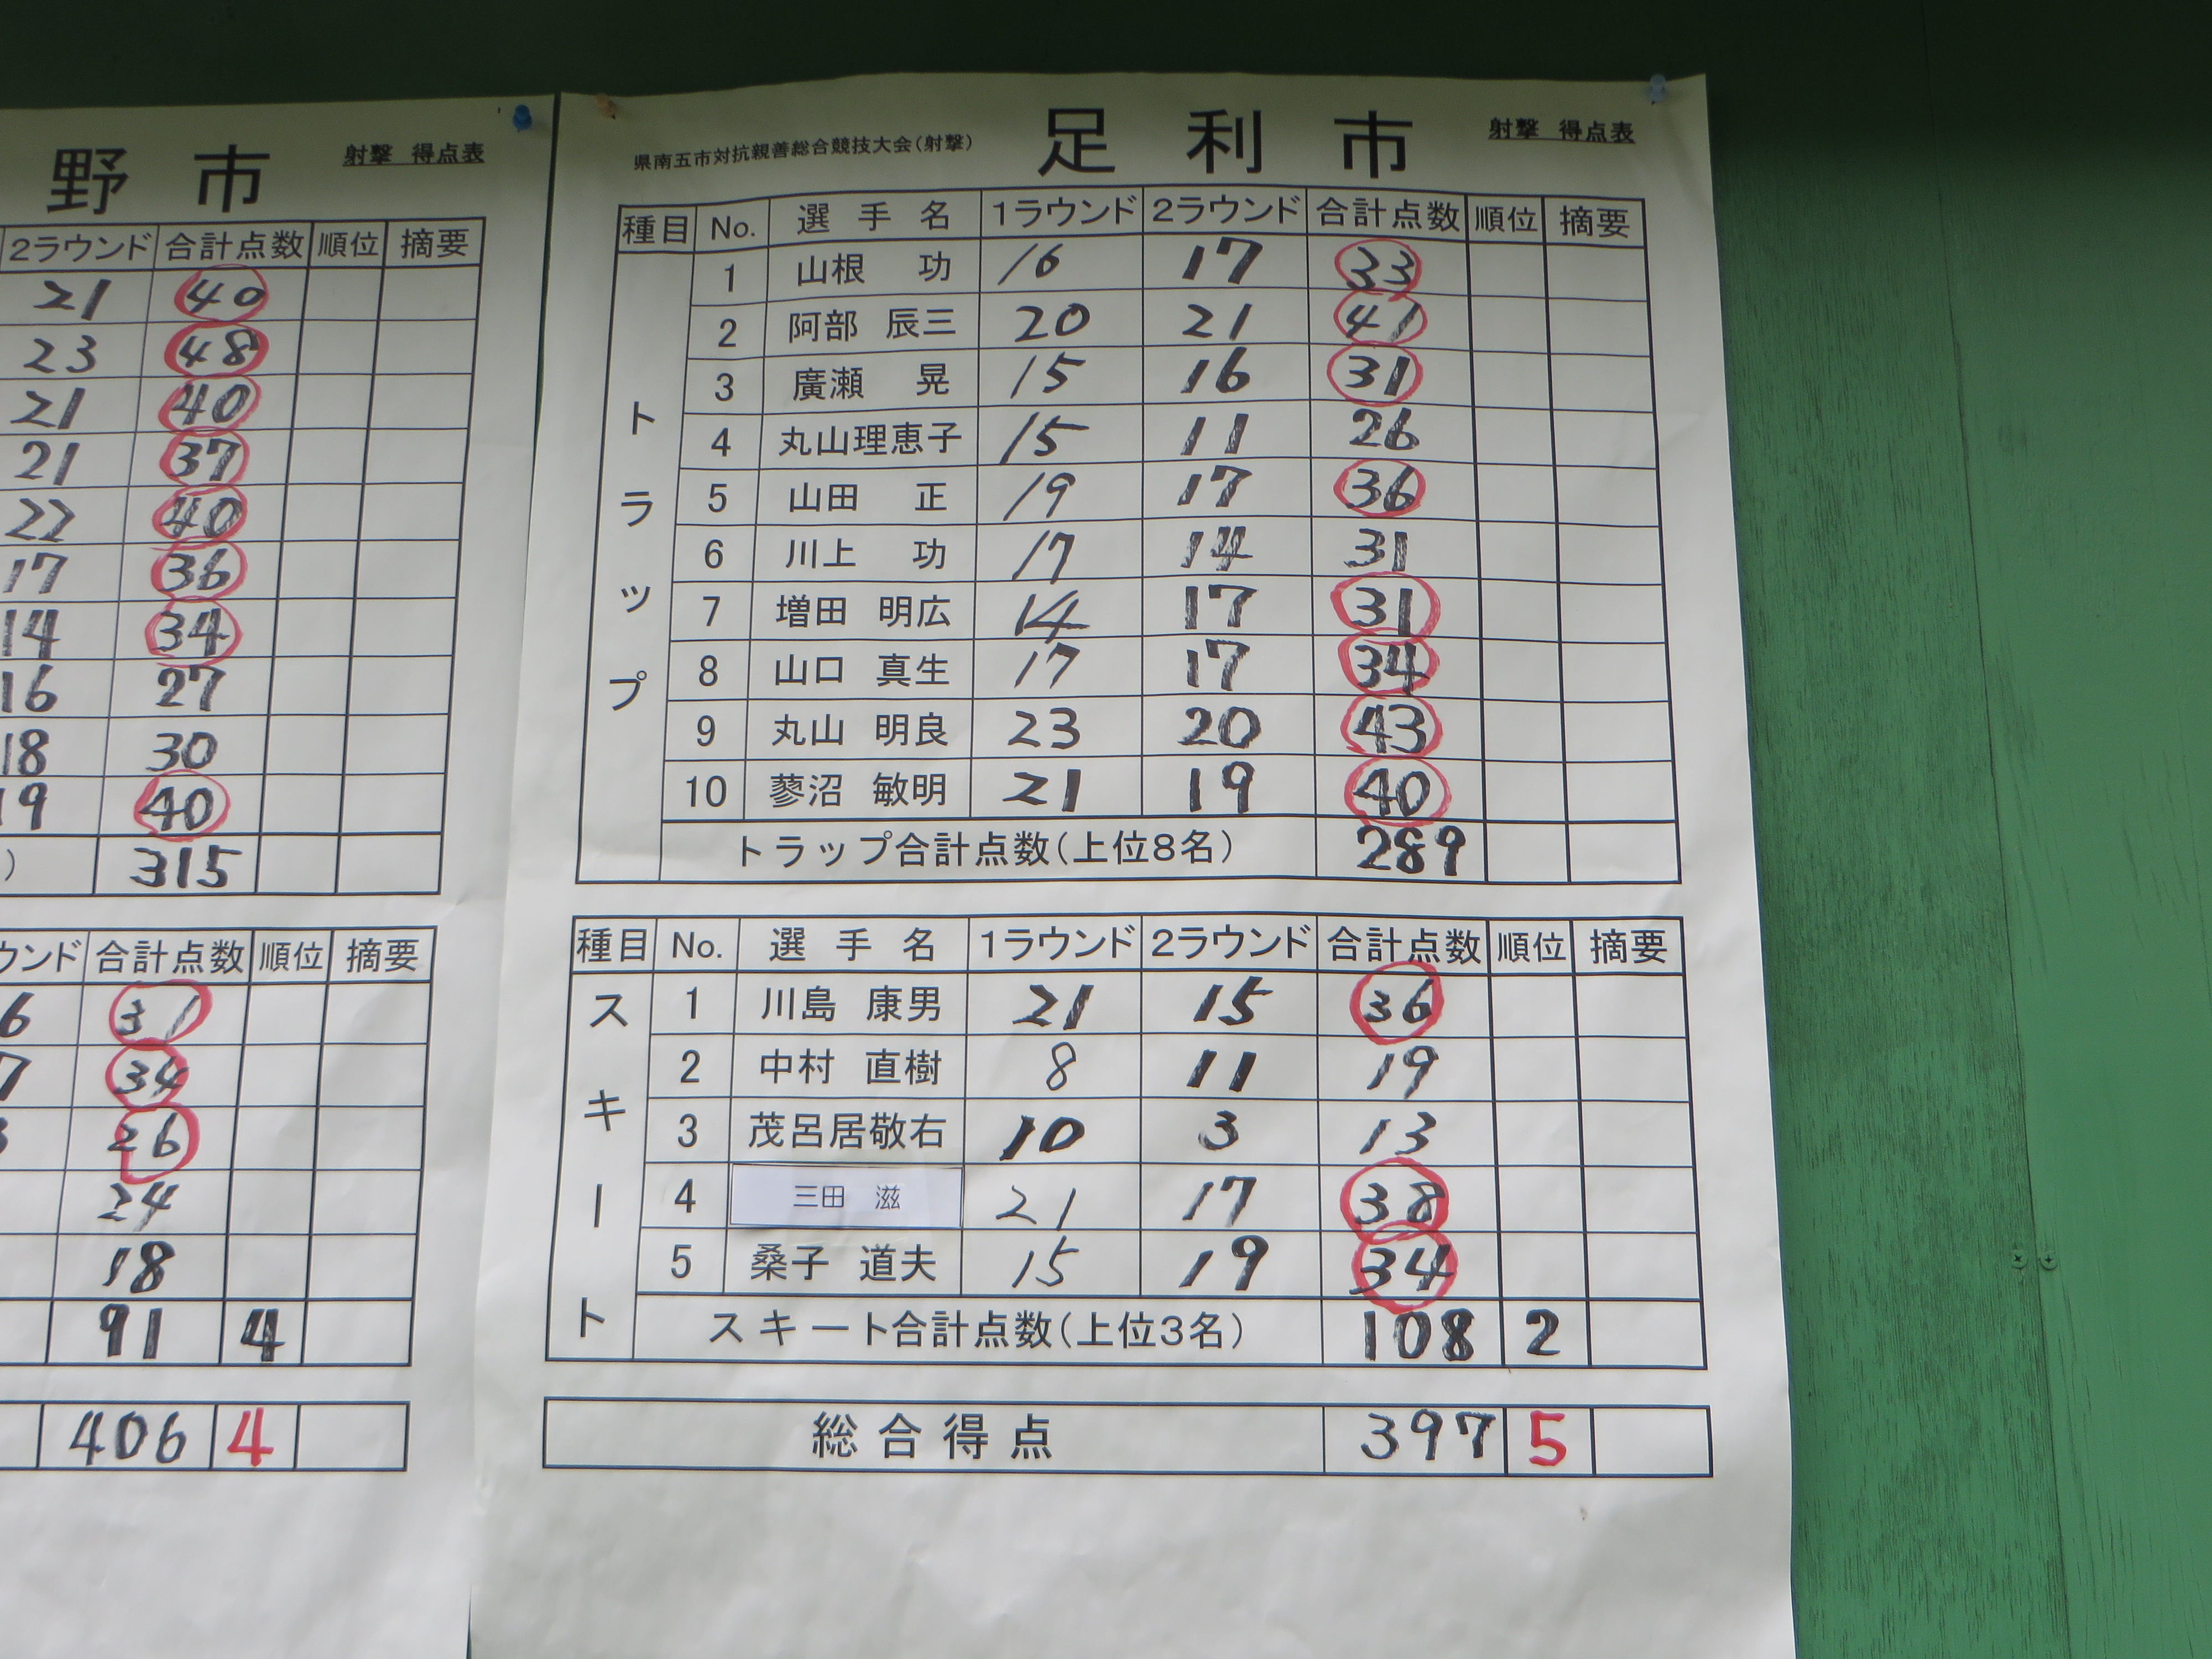 野 市
射撃 得点表
2ラウンド 合計点数 順位 摘要
21 40
23 48
21 40
21 37
22 40
17 36
14 34
16 27
18 30
19 40
) 315
ウンド 合計点数 順位 摘要
6 31
7 34
3 26
24
18
91 4
406 4
県南五市対抗親善総合競技大会(射撃)
足 利 市
射撃 得点表
種目 No. 選 手 名 1ラウンド 2ラウンド 合計点数 順位 摘要
トラップ
1 山根 功 16 17 33
2 阿部 辰三 20 21 41
3 廣瀬 晃 15 16 31
4 丸山理恵子 15 11 26
5 山田 正 19 17 36
6 川上 功 17 14 31
7 増田 明広 14 17 31
8 山口 真生 17 17 34
9 丸山 明良 23 20 43
10 蓼沼 敏明 21 19 40
トラップ合計点数(上位8名) 289
種目 No. 選 手 名 1ラウンド 2ラウンド 合計点数 順位 摘要
スキート
1 川島 康男 21 15 36
2 中村 直樹 8 11 19
3 茂呂居敬右 10 3 13
4 三田 滋 21 17 38
5 桑子 道夫 15 19 34
スキート合計点数(上位3名) 108 2
総合得点 397 5